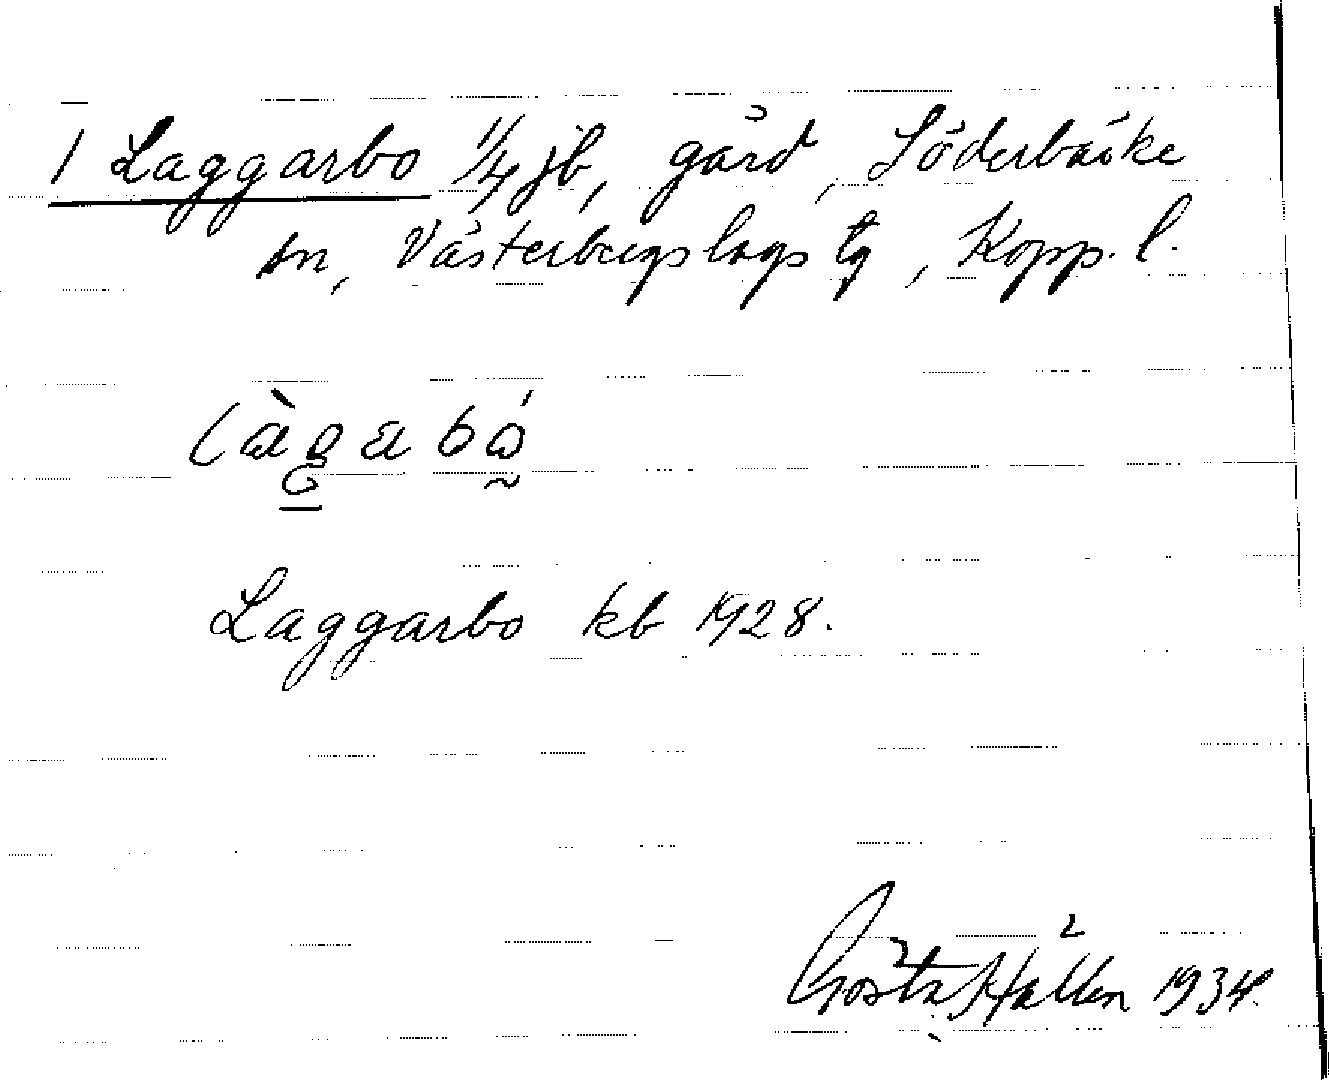 1 Laggarbo 1/4 jb, gård, Söderbärke
sn, Västerbergslags tg, Kopp. l.
Laggarbo kb 1928.
Gösta Hallén 1934.